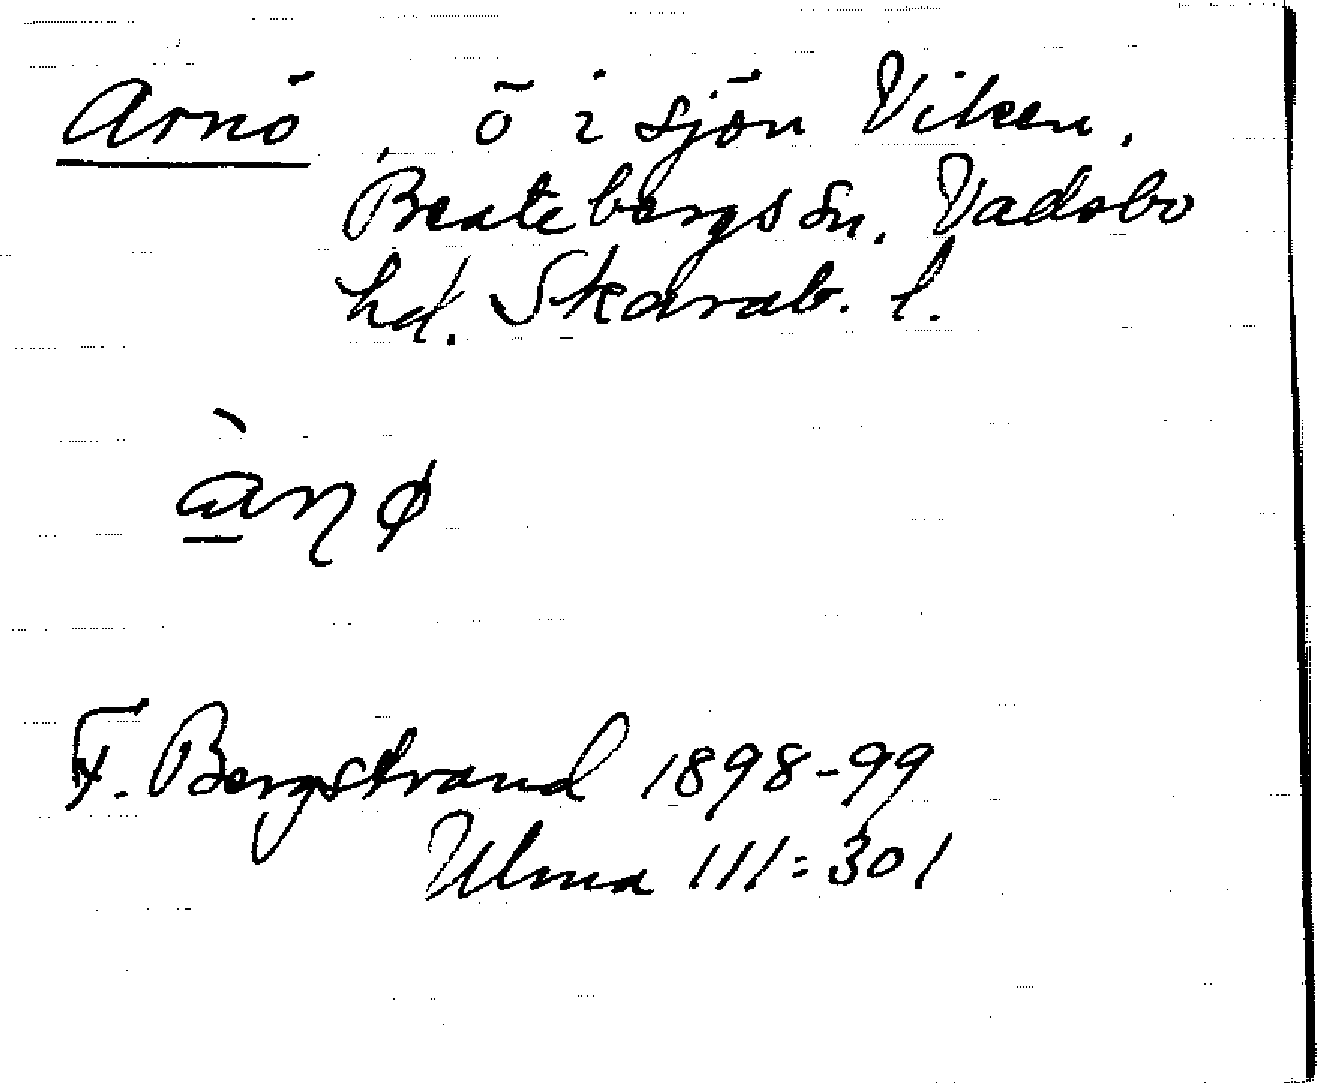 Arnö, ö i sjön Viken,
Beatebergs sn. Vadsbo
hd. Skarab. l.
àṉø
F. Bergstrand 1898-99
Ulma 111:301